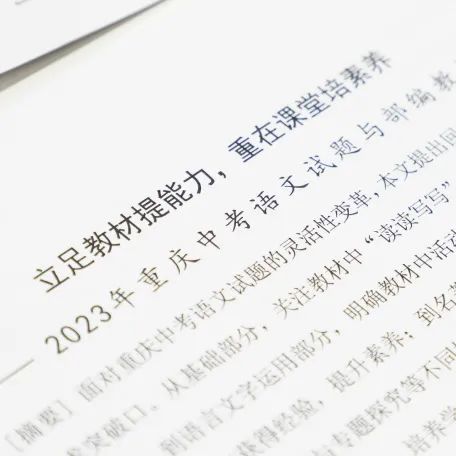 立足教材提能力，重在课堂培素养
——2023年重庆中考语文试题与部编教
[摘要] 面对重庆中考语文试题的灵活性变革，本文提出回
突破口。从基础部分，关注教材中“读读写写”
到语言文字运用部分，明确教材中活动
获得经验，提升素养；到名著
与专题探究等不同
培养学